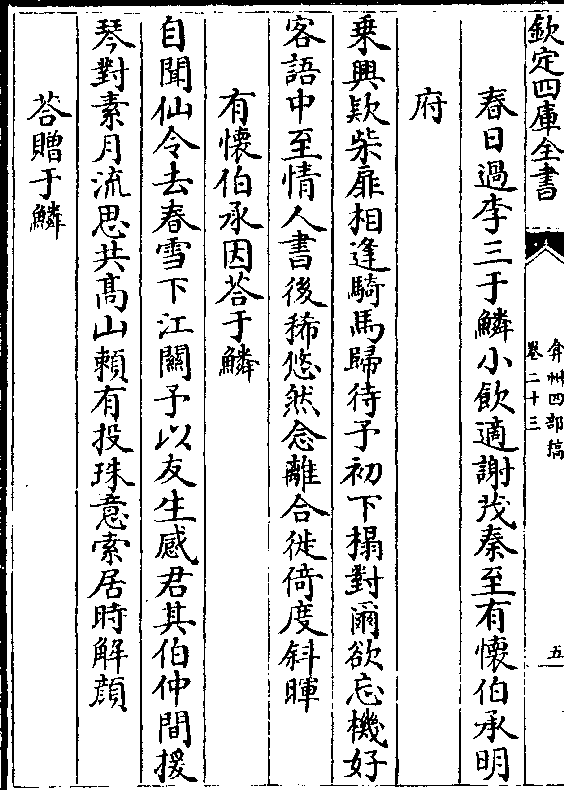 欽定四庫全書
弇州四部稿
卷二十三
五
春日過李三于鱗小飲適謝茂秦至有懷伯承明
府
乗興欵柴扉相逢騎馬歸待予初下榻對爾欲忘機好
客語中至情人書後稀悠然念離合徙倚度斜暉
有懷伯承因荅于鱗
自聞仙令去春雪下江關予以友生感君其伯仲間援
琴對素月流思共髙山頼有投珠意索居時解顔
荅贈于鱗